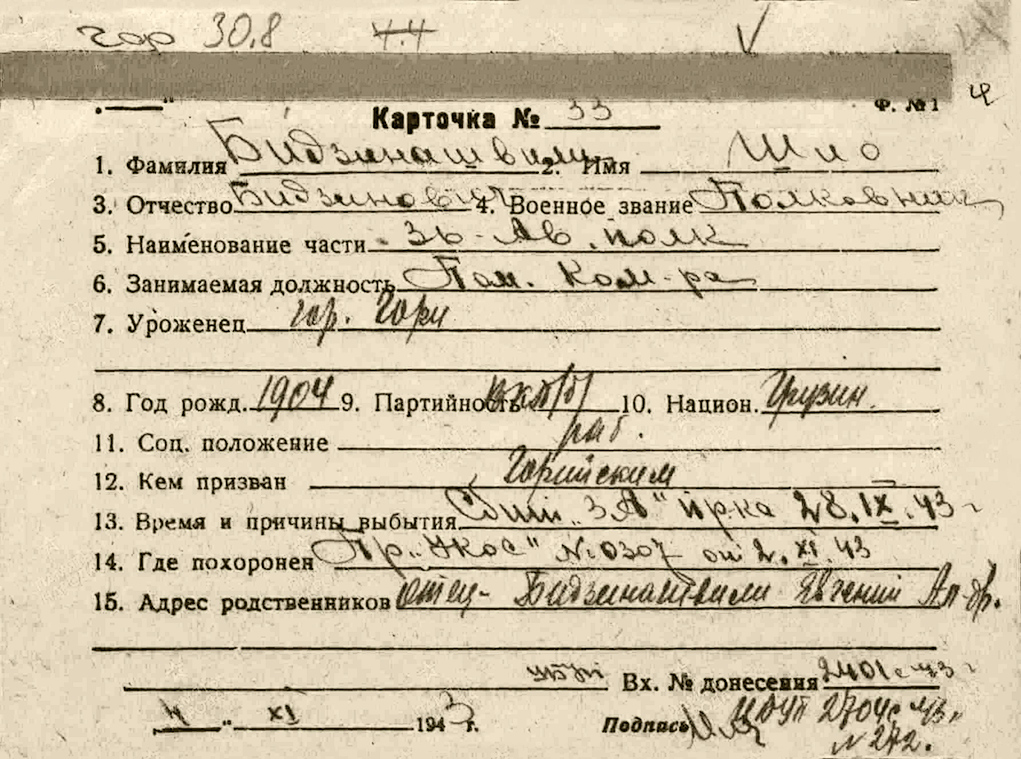 гор 30.8 4.4
Ф. №1
Карточка № 33
1. Фамилия Бидзинашвили 2. Имя Шио
3. Отчество Бидзинович 4. Военное звание Полковник
5. Наименование части 36 Ав. полк
6. Занимаемая должность Пом. Ком-ра
7. Уроженец гор. Гори
8. Год рожд. 1904 9. Партийность ВКП(б) 10. Национ. Грузин.
11. Соц. положение раб.
12. Кем призван Горийским
13. Время и причины выбытия „ЗА" 28.IX.43
14. Где похоронен Пр. „УКОС" №0307 от 2.XI.43
15. Адрес родственников отец- Бидзинашвили Евгений
Вх. № донесения 2401с 43
4 „ XI 1943 г. Подпись 2704с 43г
N 272.